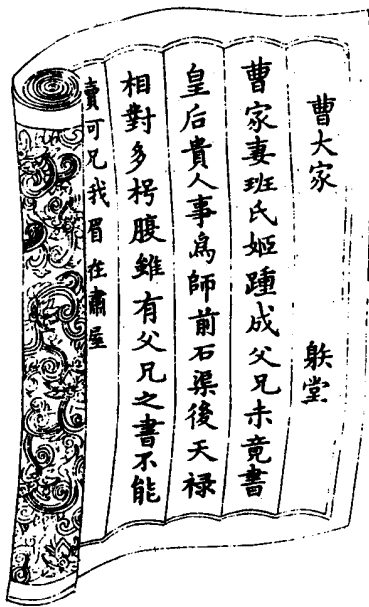 曹大家 堂
曹家妻班氏姬踵成父兄未竟書
皇后貴人事為師前石渠後天禄
相對多枵腹雖有父兄之書不能
賣可兄我眉在肅屋